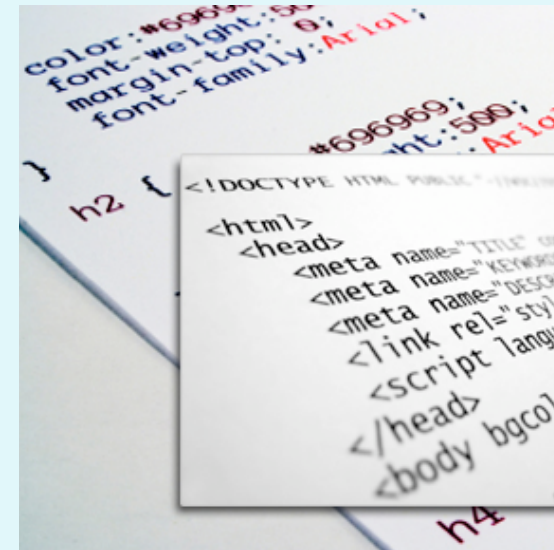 color:#6969
font-weight:50
margin-top: 0;
font-family:Arial;
}
#696969;
ht:500;
:Arial
h2 {
<!DOCTYPE HTML PUBLIC "-
<html>
<head>
<meta name="TITLE" co
<meta name="KEYWORDS
<meta name="DESCR
<link rel="styl
<script langu
</head>
<body bgcol
h4